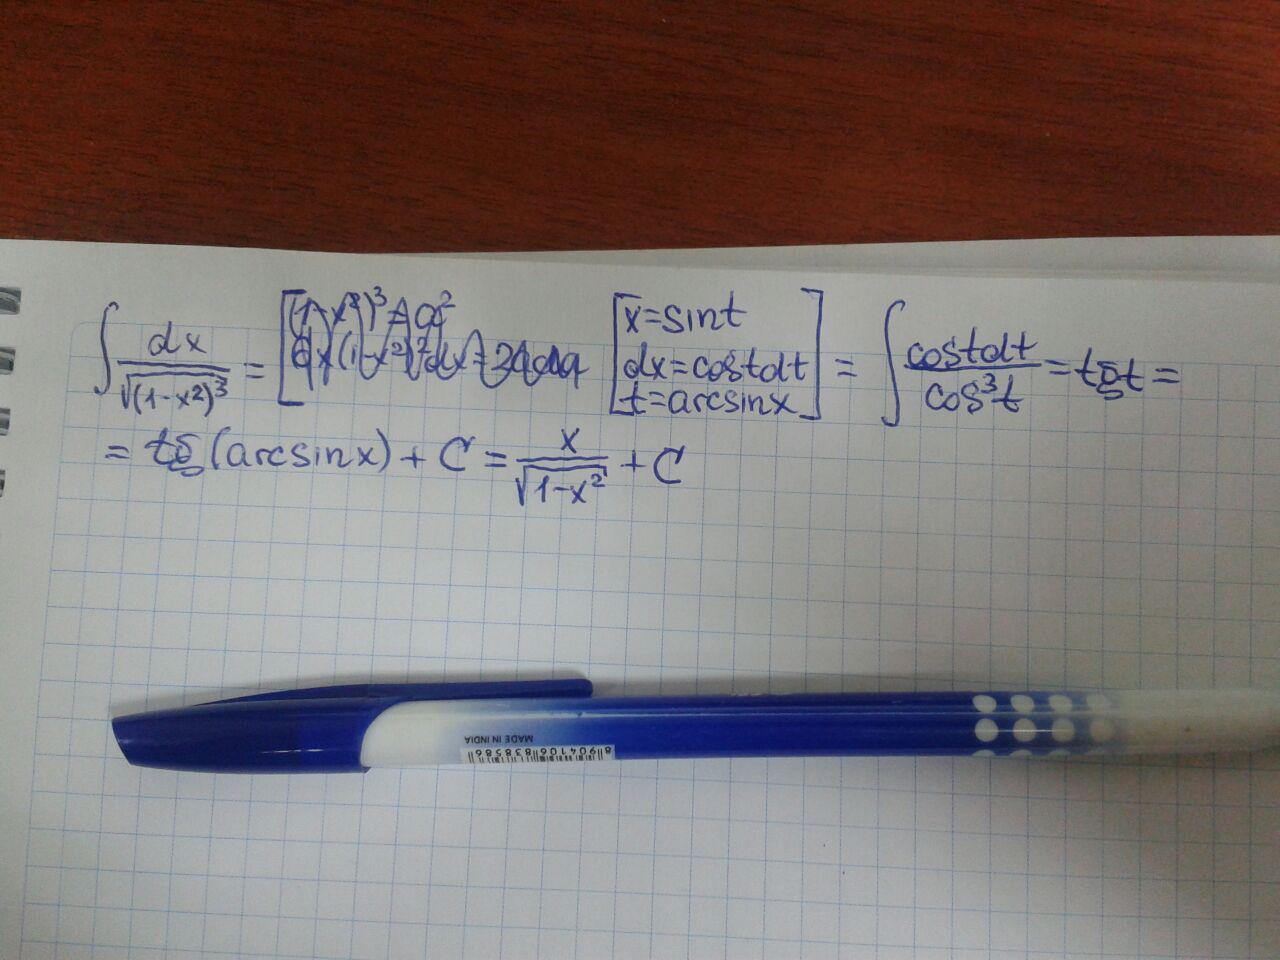 ∫ dx/√(1-x²)³ = [ (1-x²)³ = a² [ x=sint dx=costdt t=arcsinx ] = ∫ costdt/cos³t = tgt =
= tg(arcsinx) + C = x/√1-x² + C
MADE IN INDIA
8904106838586